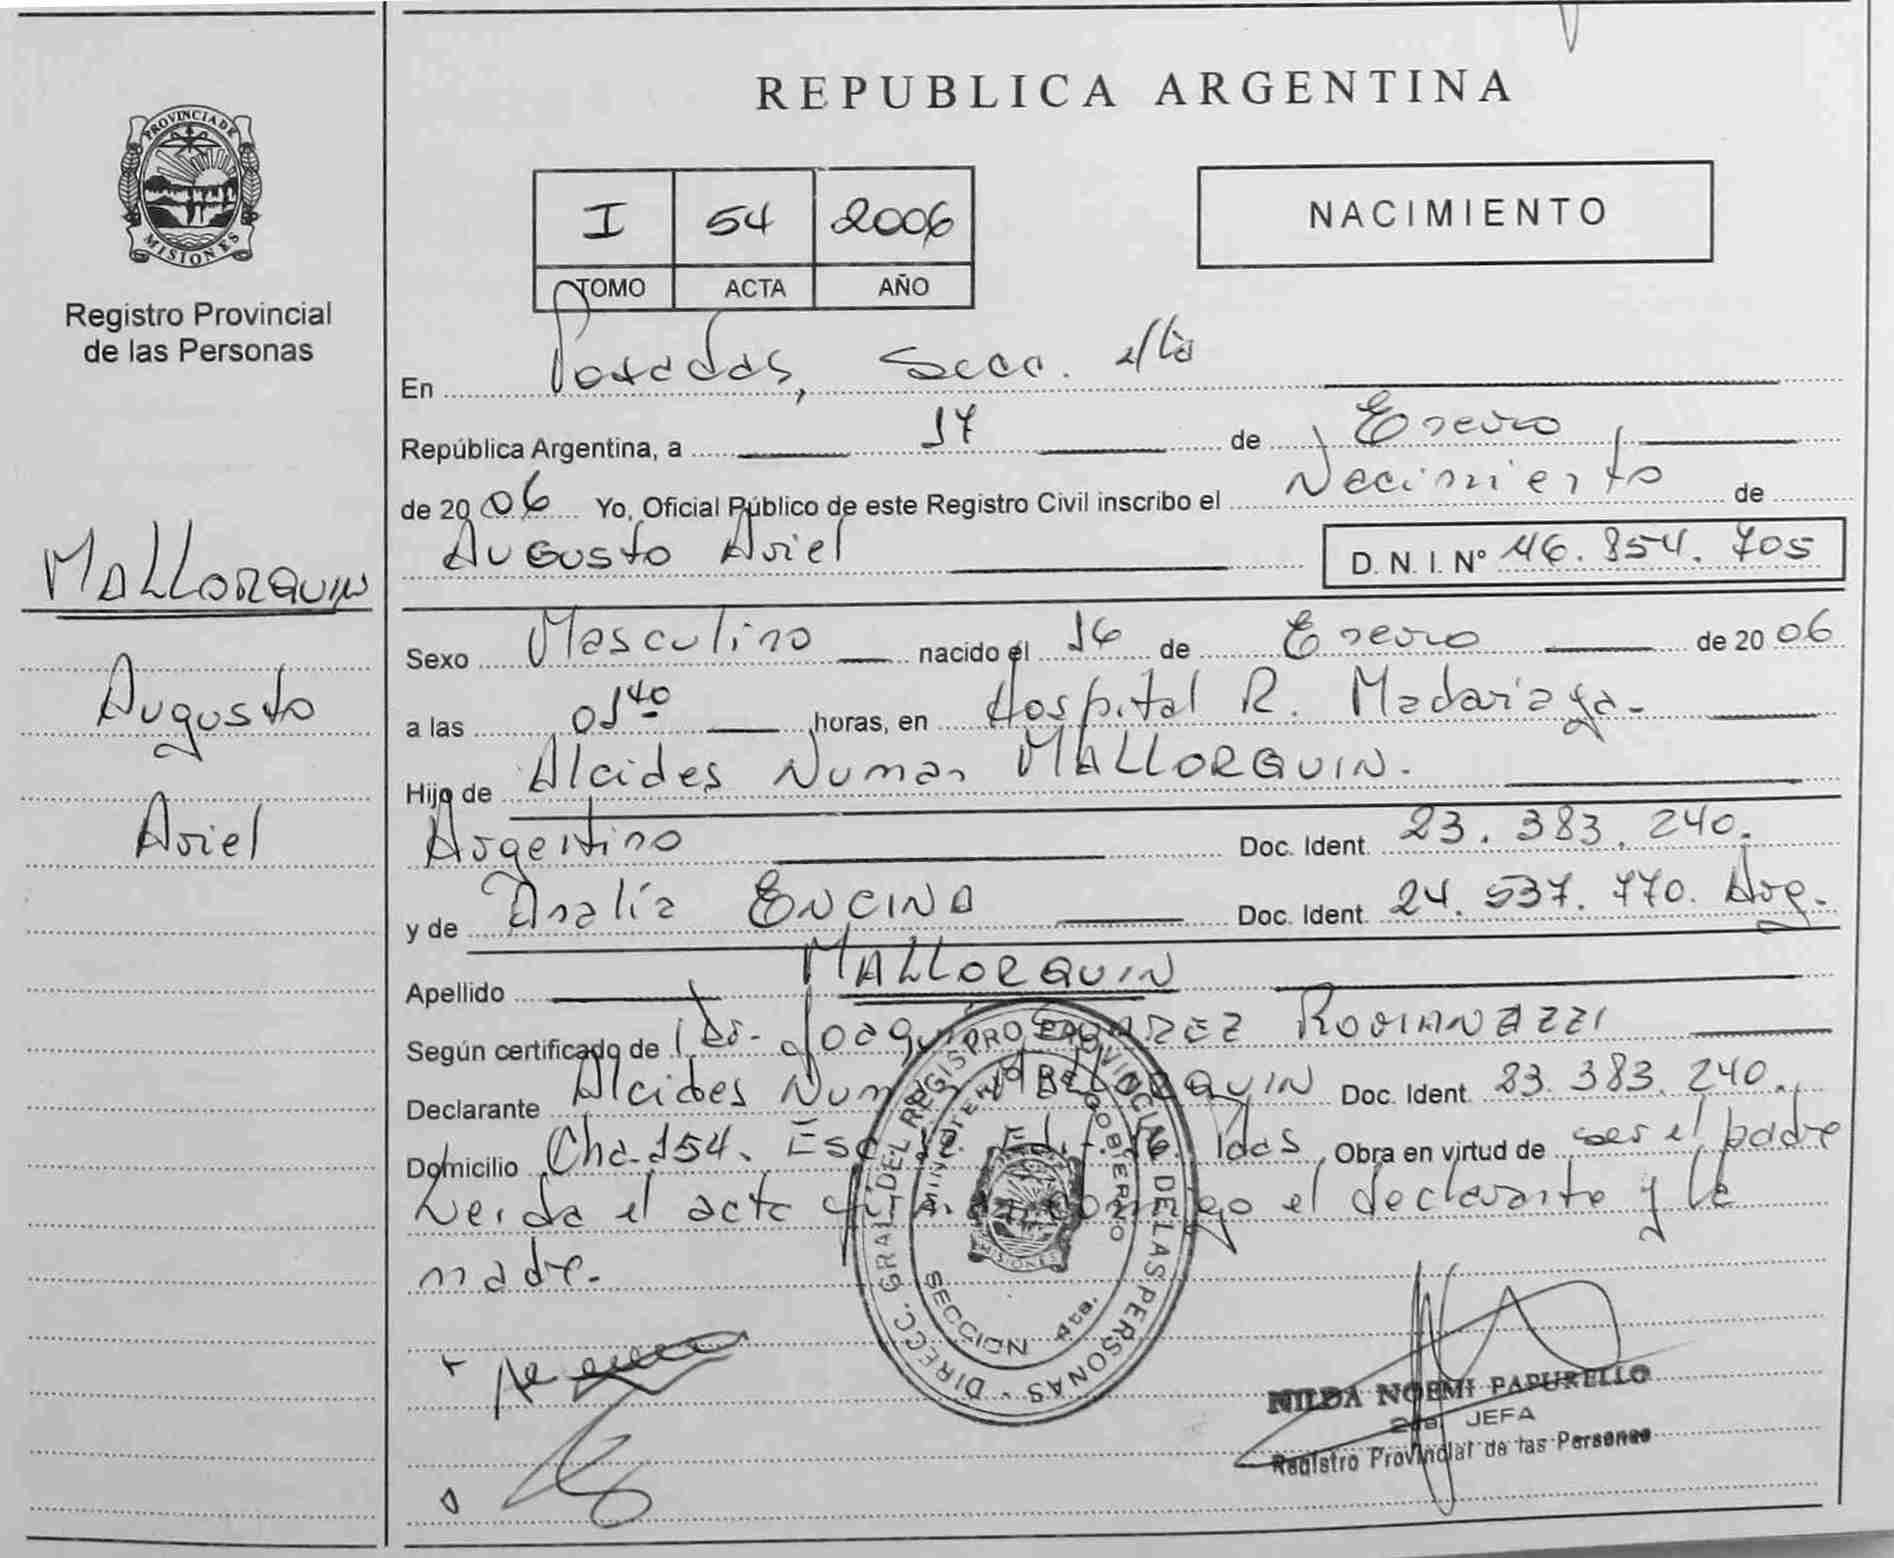 PROVINCIA DE
MISIONES
Registro Provincial
de las Personas
MALLORQUIN
Augusto
Ariel
REPUBLICA ARGENTINA
I 54 2006
TOMO ACTA AÑO
NACIMIENTO
En Posadas, Secc. 4ta
República Argentina, a 17 de Enero
de 2006 Yo, Oficial Público de este Registro Civil inscribo el Nacimiento de
Augusto Ariel D. N. I. Nº 46.854.705
Sexo Masculino nacido el 16 de Enero de 2006
a las 01 40 horas, en Hospital R. Madariaga.
Hijo de Alcides Numan MALLORQUIN.
Argentino Doc. Ident. 23.383.240.
y de Analía ENCINA Doc. Ident. 24.537.770. Arg.
Apellido MALLORQUIN
Según certificado de Dr. Joaquín
Declarante Alcides Numan MALLORQUIN Doc. Ident. 23.383.240.
Domicilio Cha. 154. Esc. Pdas Obra en virtud de ser el padre
Leída el acta firman conmigo el declarante y la
madre.
DIRECC. GRAL. DEL REGISTRO PROVINCIAL DE LAS PERSONAS
MINISTERIO DE GOBIERNO
SECCION 4ta.
MISIONES
NILDA NOEMI PAPURELLO
JEFA
Registro Provincial de las Personas